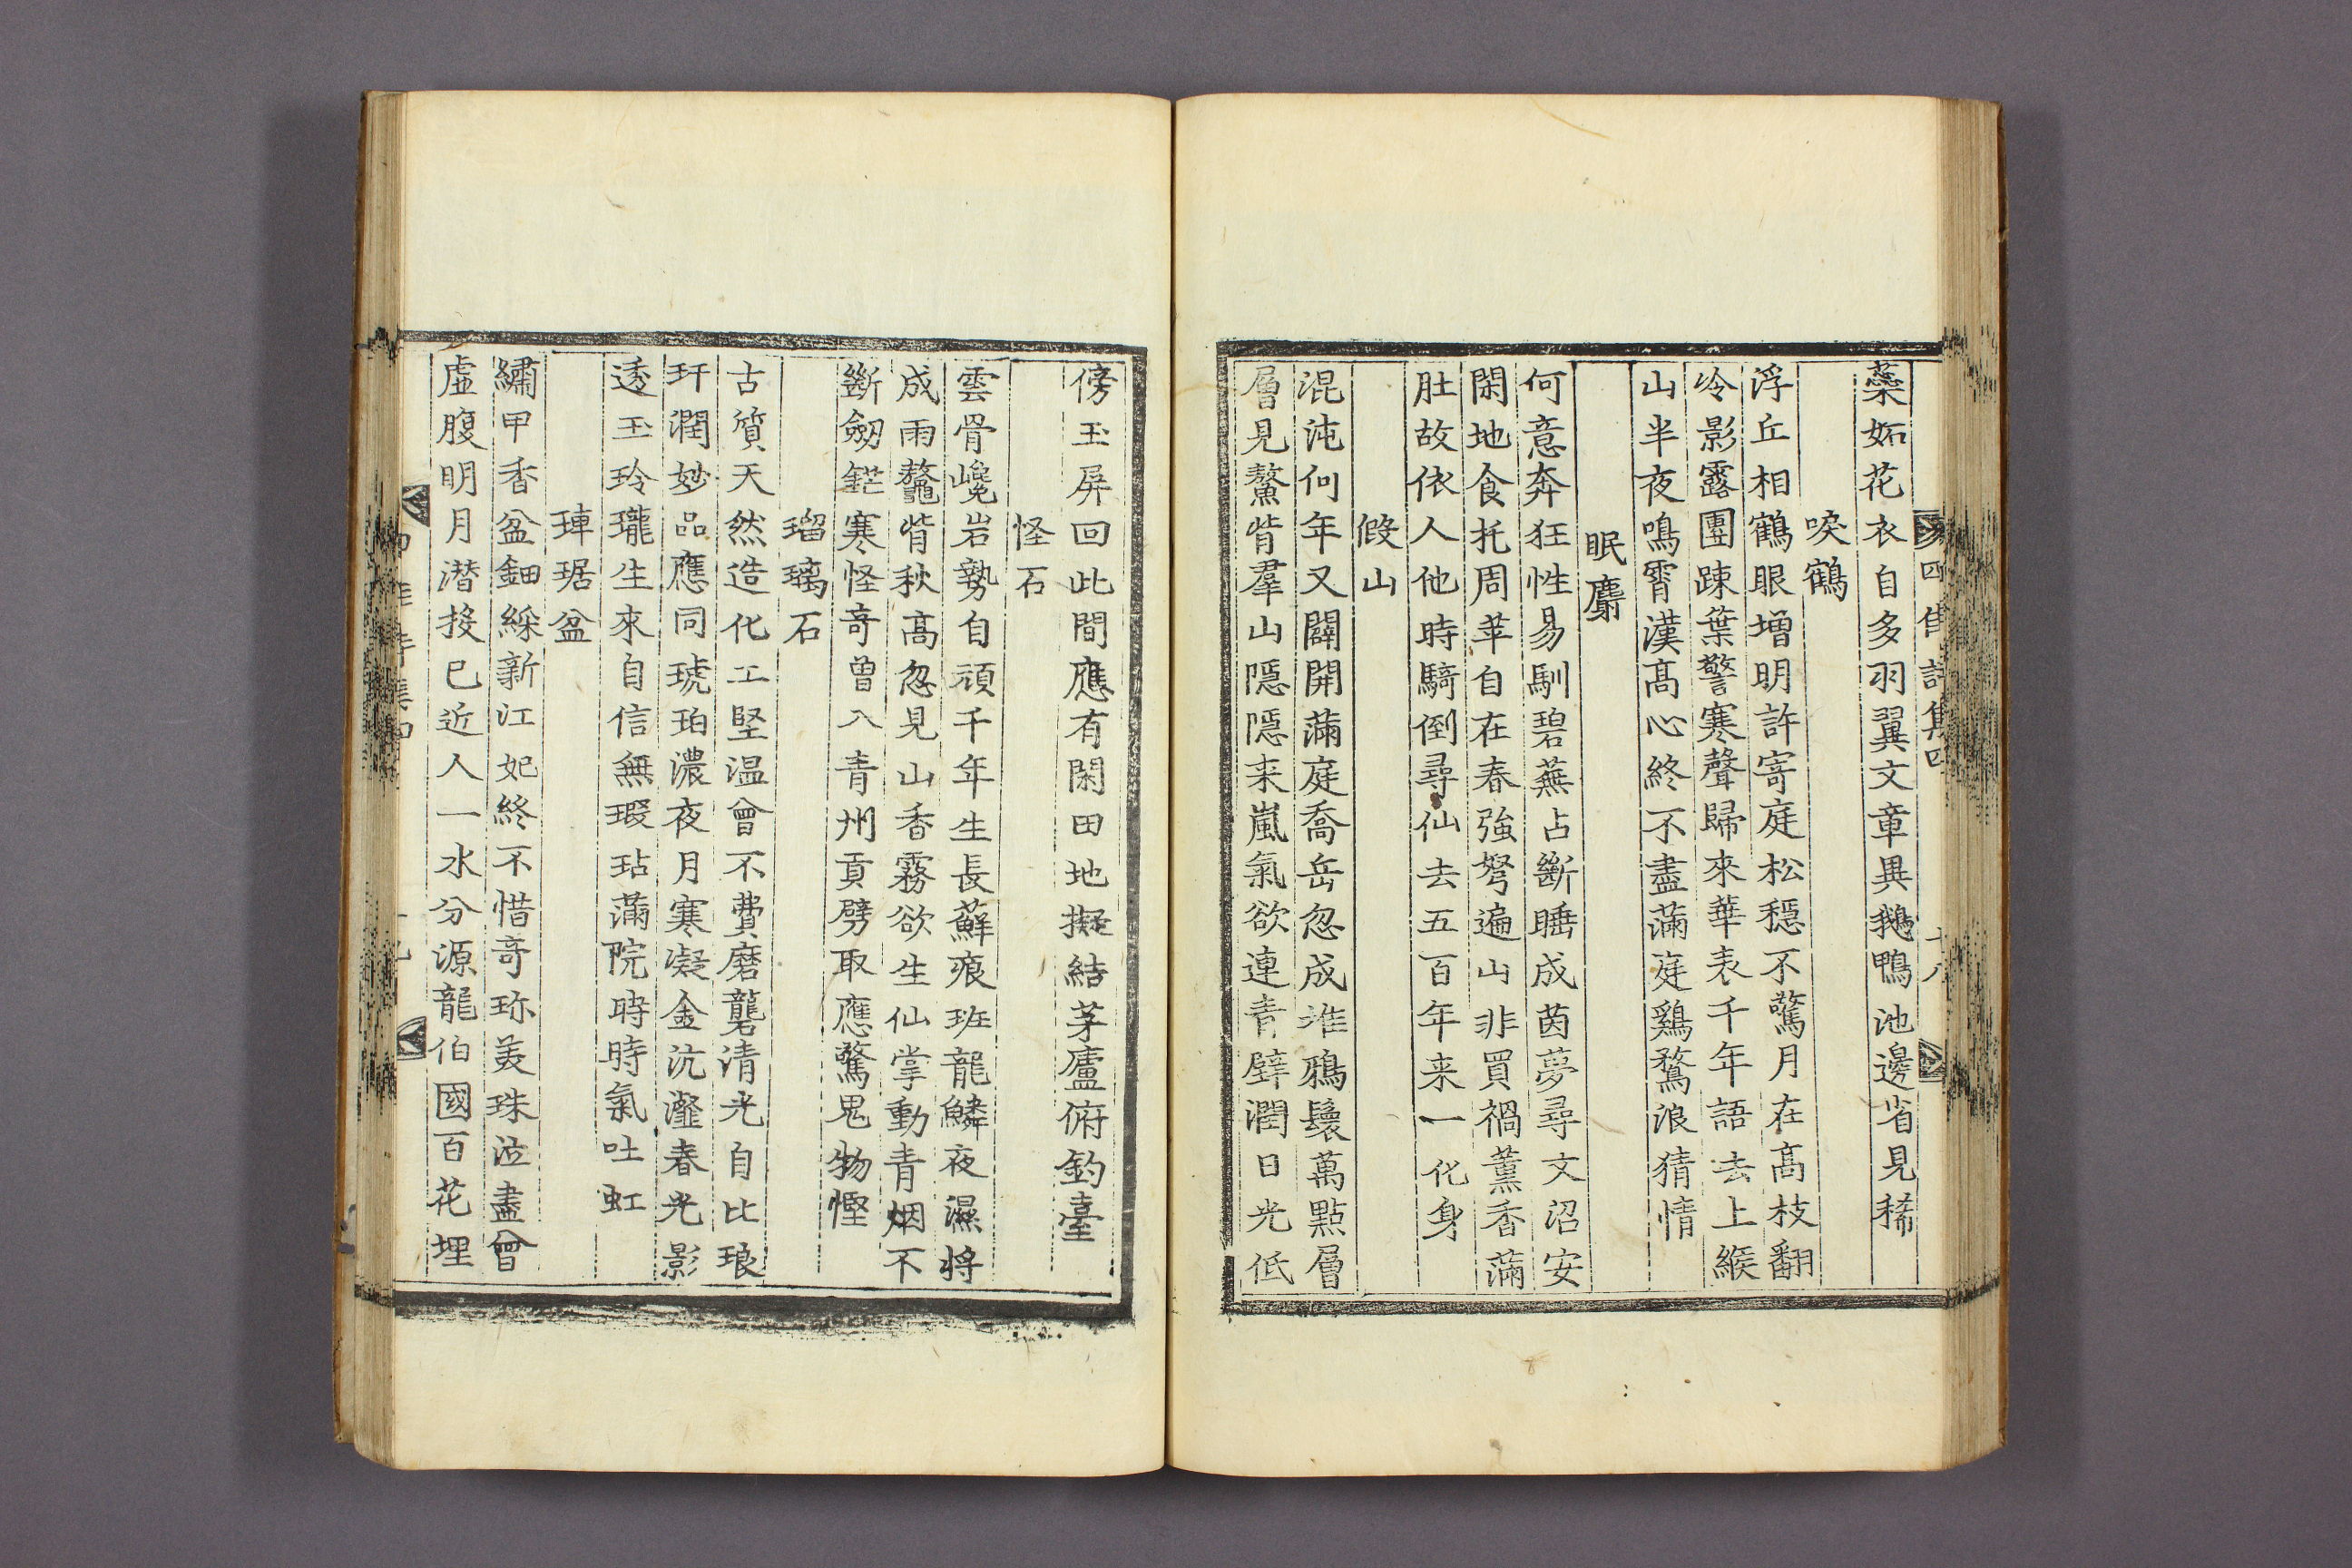 蘂妬花衣自多羽翼文章異鵝鴨池邊省見稀
唳鶴
浮丘相鶴眼增明許寄庭松穩不驚月在高枝翻
冷影露團踈葉警寒聲歸來華表千年語去上緱
山半夜鳴霄漢高心終不盡滿庭鷄鶩浪猜情
眠麝
何意奔狂性易馴碧蕪占斷睡成茵夢尋文沼安
閑地食托周苹自在春強弩遍山非買禍薰香滿
肚故依人他時騎倒尋仙去五百年来一化身
假山
混沌何年又闢開滿庭喬岳忽成堆鴉鬟萬點層
層見鰲背羣山隱隱来嵐氣欲連青壁潤日光低
傍玉屏回此間應有閑田地擬結茅廬俯釣臺
怪石
雲骨巉岩勢自頑千年生長蘚痕班龍鱗夜濕将
成雨鼇背秋高忽見山香霧欲生仙掌動青烟不
斷劒鋩寒怪奇曾入青州貢劈取應驚鬼物慳
瑠璃石
古質天然造化工堅温曾不費磨礱清光自比琅
玕潤妙品應同琥珀濃夜月寒凝金沆瀣春光影
透玉玲瓏生來自信無瑕玷滿院時時氣吐虹
琿琚盆
繡甲香盆鈿綵新江妃終不惜奇珎美珠泣盡曾
虛腹明月潜投已近人一水分源龍伯國百花埋